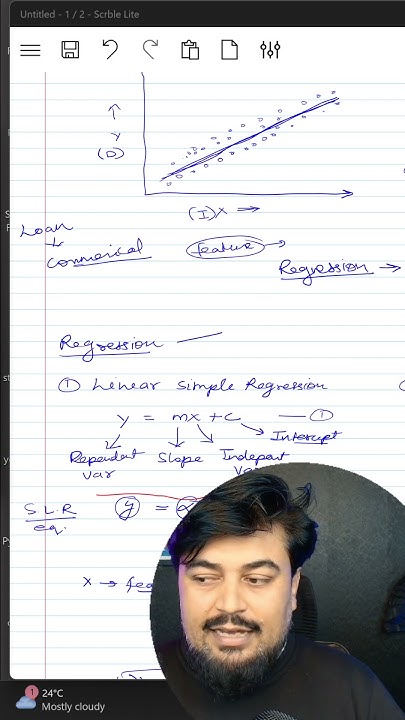 Untitled - 1 / 2 - Scrble Lite
Y
(D)
(I) X
Loan
Commerical
feature
Regression
Regression
① Linear Simple Regression
y = mx + c ①
Intercept
Slope
Var
S.L.R
eq.
y =
x → fea
1
24°C
Mostly cloudy